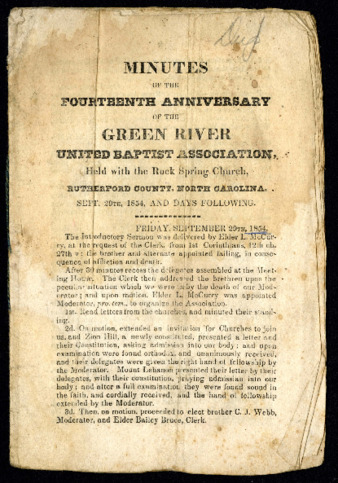 MINUTES
OF THE
FOURTEENTH ANNIVERSARY
OF THE
GREEN RIVER
UNITED BAPTIST ASSOCIATION,
Held with the Rock Spring Church,
RUTHERFORD COUNTY, NORTH CAROLINA.
SEPT. 29TH, 1854, AND DAYS FOLLOWING.
FRIDAY, SEPTEMBER 29TH, 1854.
The Introductory Sermon was delivered by Elder L. McCur-
ry, at the request of the Clerk, from 1st Corinthians, 12th ch.
27th v: the brother and alternate appointed failing, in conse-
quence of afflictions and death.
After 30 minutes recess the delegates assembled at the Meet-
ing House. The Clerk then addressed the brethren upon the
peculiar situation which we were in by the death of our Mod-
erator; and upon motion, Elder L. McCurry was appointed
Moderator, pro. tem., to organize the Association.
1st. Read letters from the churches, and minuted their stand-
ing.
2d. On motion, extended an invitation for Churches to join
us, and Zion Hill, a newly constituted, presented a letter and
their Constitution, asking admission into our body; and upon
examination were found orthodox and unanimously received,
and their delegates were given the right hand of fellowship by
the Moderator. Mount Lebanon presented their letter by their
delegates, with their constitution, praying admission into our
body; and after a full examination they were found sound in
the faith, and cordially received, and the hand of fellowship
extended by the Moderator.
3d. Then, on motion, proceeded to elect brother C. J. Webb,
Moderator, and Elder Bailey Bruce, Clerk.